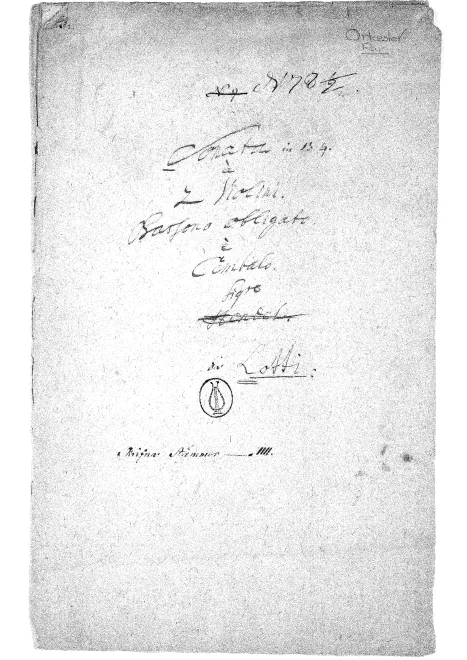 Orkester
N 9 N 78 ½.
Sonata in B 4.
à
2 Violini.
Bassono obligato.
è
Cembalo.
Sigre
di Lotti.
Stimmer — IIII.